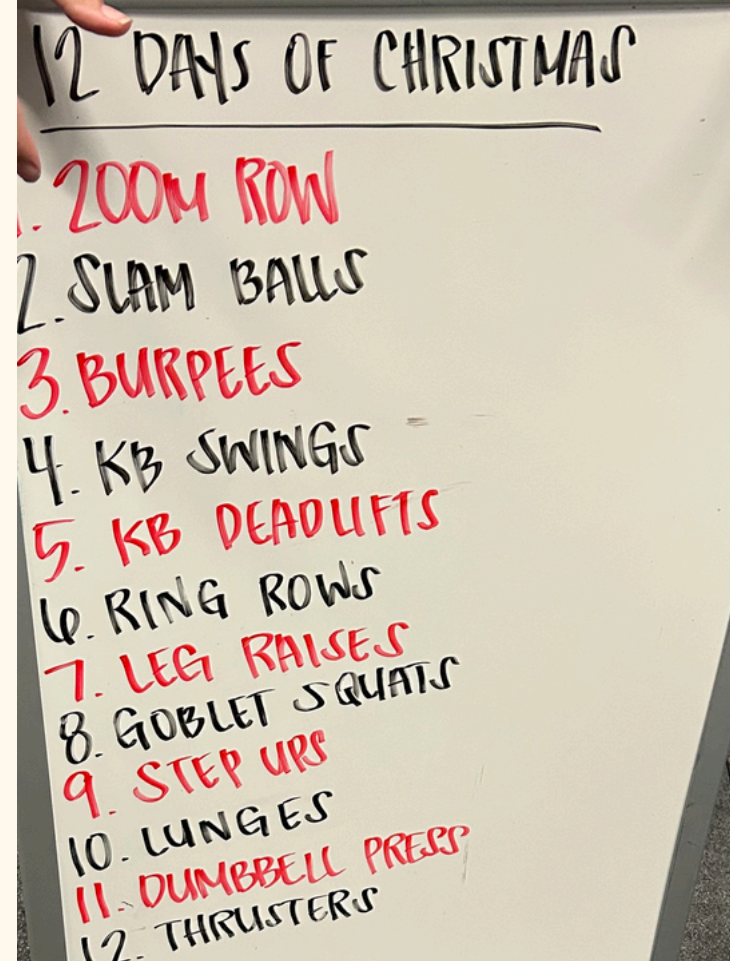 12 DAYS OF CHRISTMAS
1. 200M ROW
2. SLAM BALLS
3. BURPEES
4. KB SWINGS
5. KB DEADLIFTS
6. RING ROWS
7. LEG RAISES
8. GOBLET SQUATS
9. STEP UPS
10. LUNGES
11. DUMBBELL PRESS
12. THRUSTERS